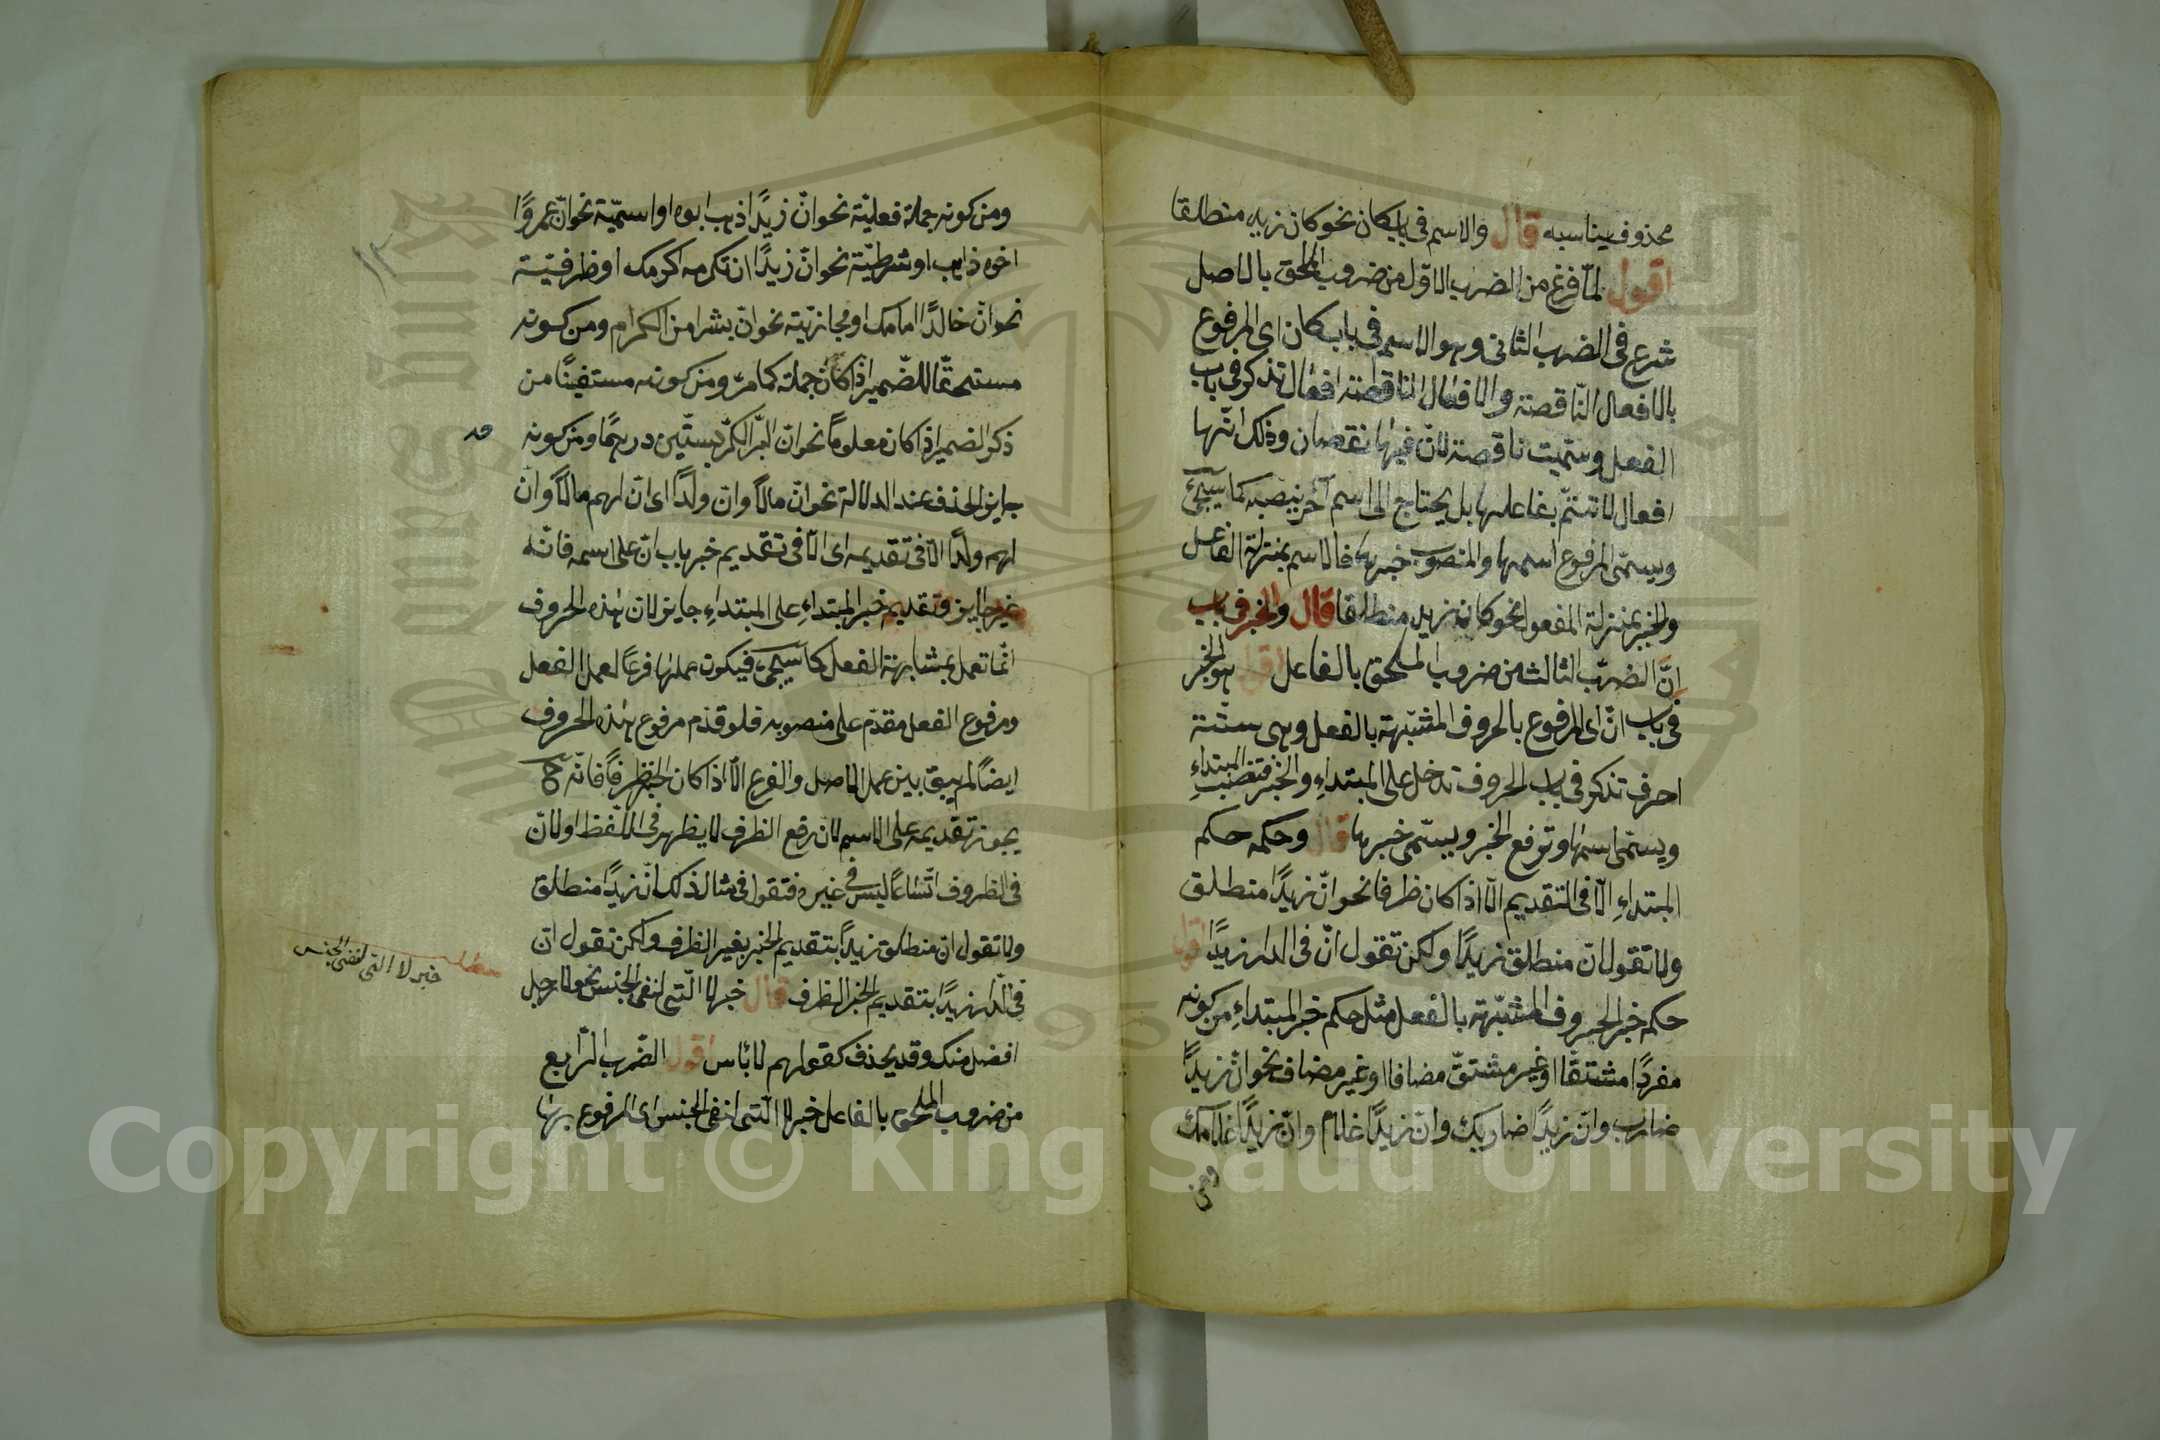 محذوف يناسبه قال والاسم فى باب كان نحو كان زيد منطلقا
اقول لمّا فرغ من الضرب الاوّل من ضروب الملحق بالاصل
شرع فى الضرب الثانى وهو الاسم فى باب كان اى المرفوع
بالافعال النّاقصة والافعال الناقصة افعال تذكر فى باب
الفعل وسمّيت ناقصة لانّ فيها نقصان وذلك انّها
افعال لا تتمّ بفاعلها بل يحتاج الى اسم آخر ينصبه كما سيجئ
ويسمّى المرفوع اسمها والمنصوب خبرها فالاسم بمنزلة الفاعل
والخبر بمنزلة المفعول نحو كان زيد منطلقا قال والخبر فى باب
انّ الضرب الثالث من ضروب الملحق بالفاعل اقول هو الخبر
فى باب انّ اى المرفوع بالحروف المشبّهة بالفعل وهى ستّة
احرف تذكر فى باب الحروف تدخل على المبتداءِ والخبر فتنصب المبتداءِ
ويسمّى اسمها وترفع الخبر ويسمّى خبرها قال وحكمه حكم
المبتداءِ الّا فى التقديم الّا اذا كان ظرفا نحو انّ زيدًا منطلق
ولا تقول ان منطلق زيدًا ولكن تقول انّ فى الدار زيدًا اقول
حكم خبر الحروف المشبّهة بالفعل مثل حكم خبر المبتداءِ من كونه
مفردًا مشتقًّا او غير مشتقّ مضافا او غير مضاف نحو انّ زيدًا
ضارب وانّ زيدًا ضاربك وانّ زيدًا غلام وانّ زيدًا غلامك
ومن
ومن كونه جملة فعليّة نحو انّ زيدًا ذهب ابوه او اسميّة نحو انّ عمروًا
اخوه ذاهب او شرطيّة نحو انّ زيدًا ان تكرمه اكرمك او ظرفيّة
نحو انّ خالدًا امامك او مجازيّة نحو انّ بشرا من الكرام ومن كونه
مستحقّا للضّمير اذا كان جملة كما مرّ ومن كونه مستغنيًا من
ذكر الضمير اذا كان معلومًا نحو انّ البرّ الكرّ بستّين درهمًا ومن كونه
جايز الحذف عند الدلالة نحو انّ مالًا وانّ ولدًا اى انّ لهم مالًا وانّ
لهم ولدًا الّا فى تقديمه اى الّا فى تقديم خبر باب انّ على اسمه فانّه
غير جايز وتقديم خبر المبتداءِ على المبتداءِ جايز لانّ هذه الحروف
انّما تعمل بمشابهة الفعل كما سيجئ فيكون عملها فرعًا لعمل الفعل
ومرفوع الفعل مقدّم على منصوبه فلو قدّم مرفوع هذه الحروف
ايضًا لم يبق بين عمل الاصل والفرع الّا اذا كان الخبر ظرفًا فانّه ح
يجوز تقديمه على الاسم لان رفع الظرف لا يظهر فى اللّفظ او لانّ
فى الظروف اتّساعًا ليس فى غيره فتقول فى مثال ذلك انّ زيدًا منطلق
ولا تقول ان منطلق زيدًا بتقديم الخبر بغير الظرف ولكن تقول انّ
فى الدّار زيدًا بتقديم الخبر الظرف قال خبر لا الّتى لنفى الجنس نحو لا رجل
افضل منك وقد يحذف كقولهم لا بأس اقول الضّرب الرّابع
من ضروب الملحق بالفاعل خبر لا الّتى لنفى الجنس اى المرفوع بها
مطلب
خبر لا التى لنفى الجنس
Copyright © King Saud University